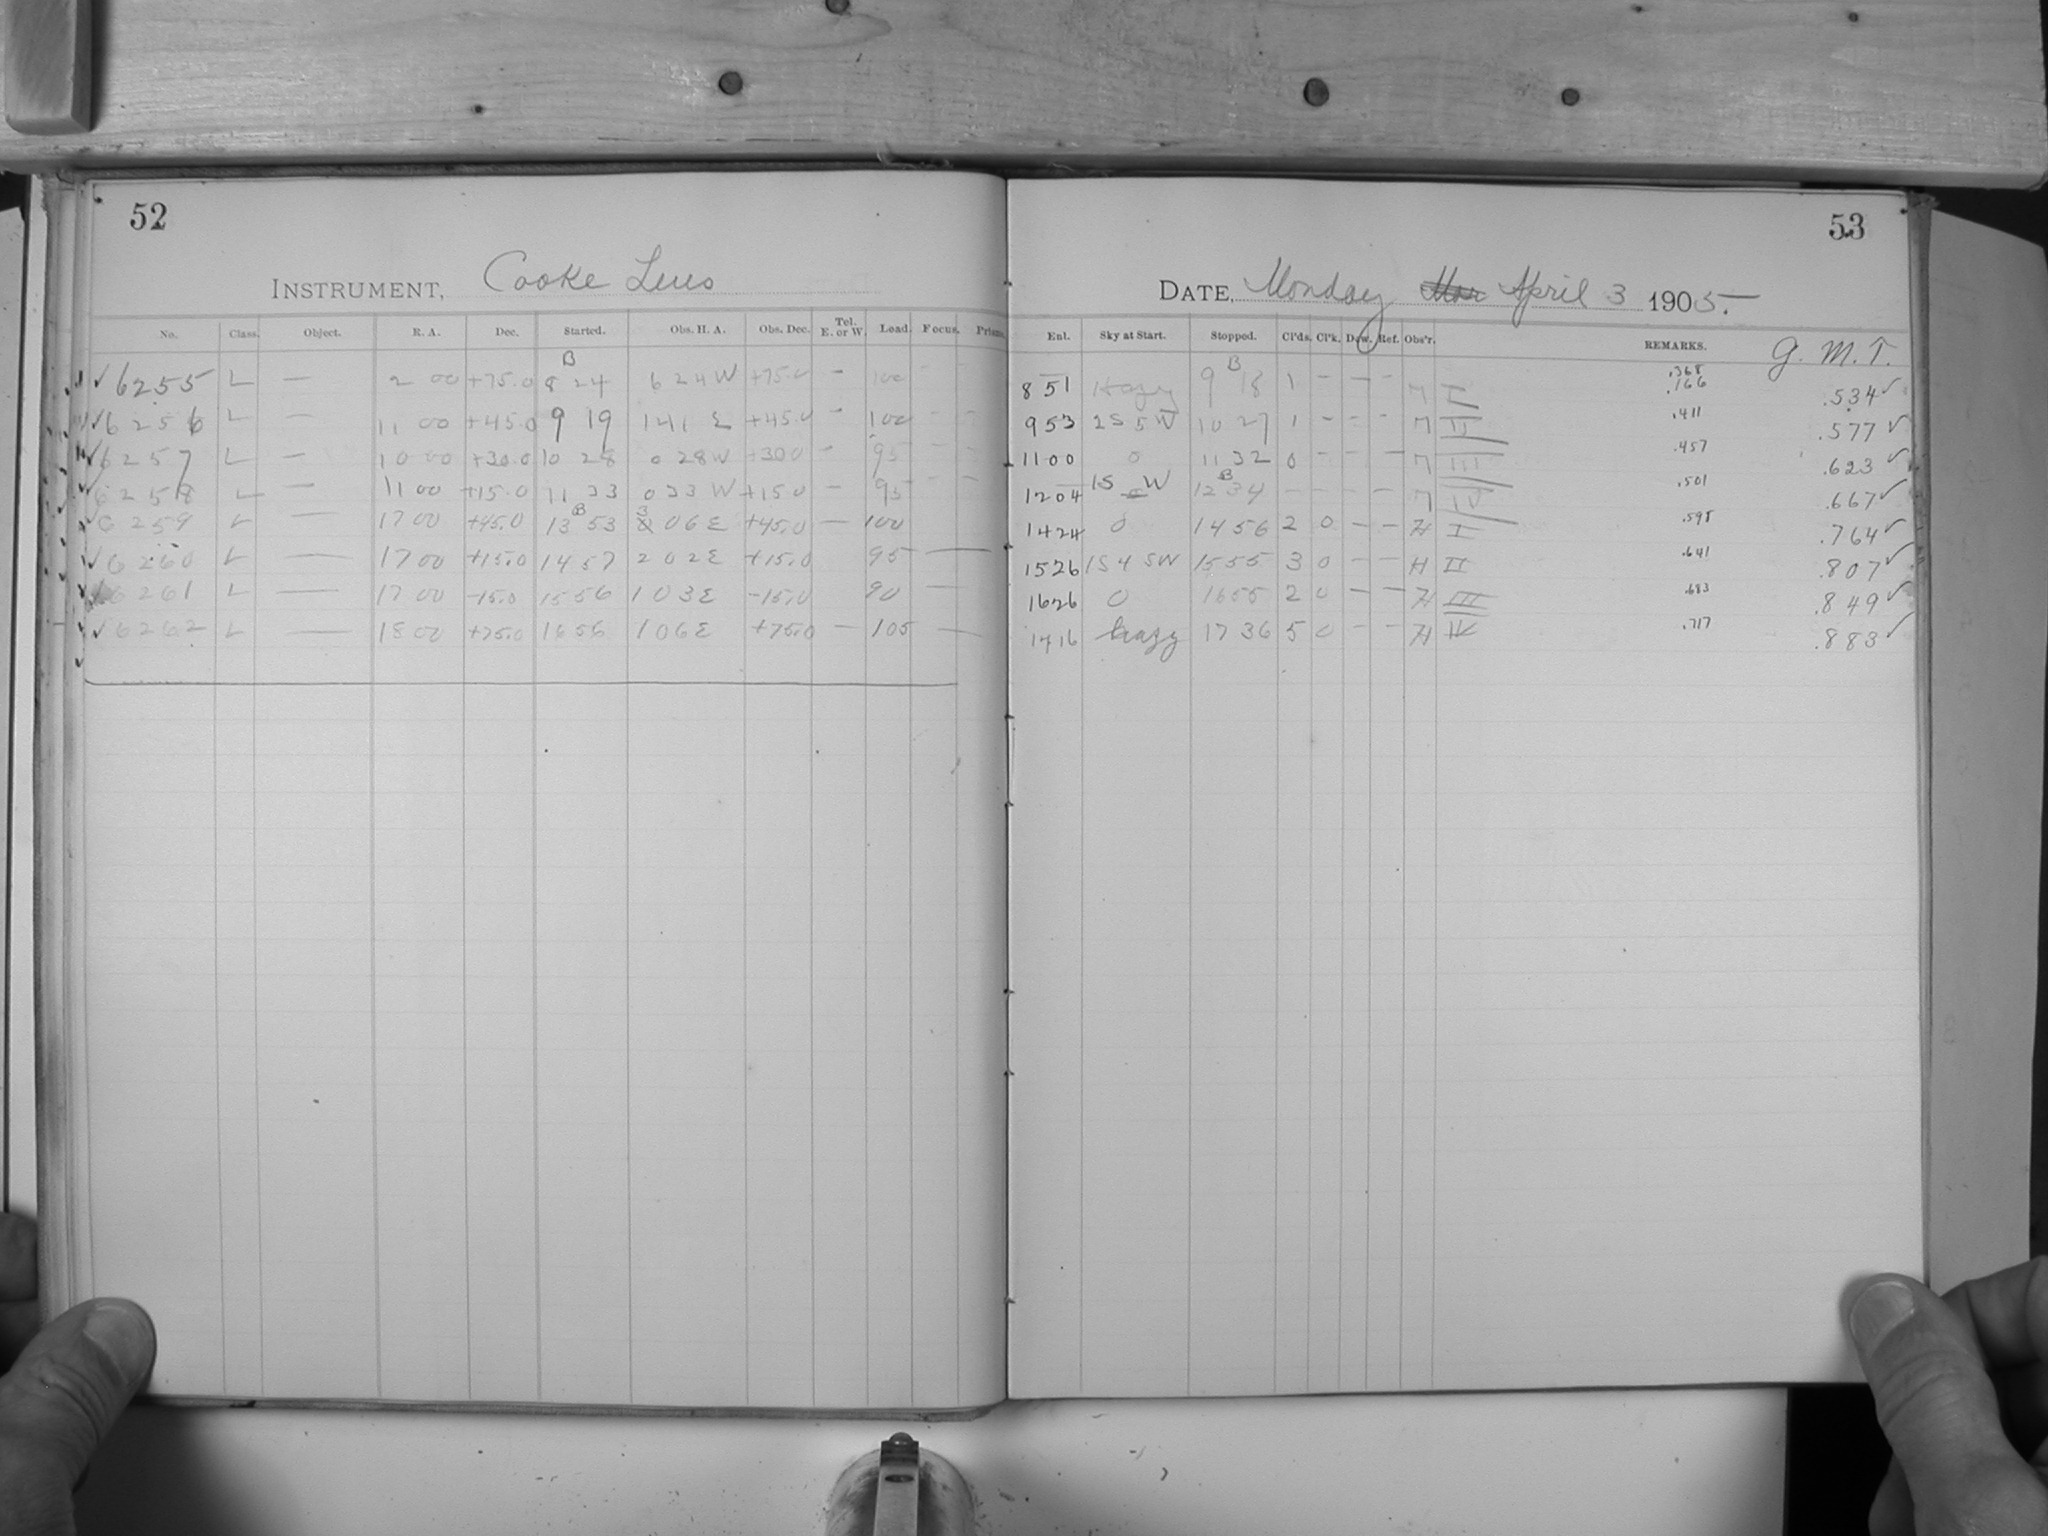 52
INSTRUMENT, Cooke Lens
No. Class. Object. R. A. Dec. Started. Obs. H. A. Obs. Dec. Tel. E. or W. Load. Focus. Prisms.
B
✓ 6255 L — 2 00 +75.0 8 24 6 24 W +75.0 — 100 - -
✓ 6256 L — 11 00 +45.0 9 19 1 41 E +45.0 — 100 - -
✓ 6257 L — 10 00 +30.0 10 28 0 28 W +30.0 — 95 - -
✓ 6258 L — 11 00 +15.0 11 33 0 33 W +15.0 — 95 - -
B 3
✓ 6259 L — 17 00 +45.0 13 53 06 E +45.0 — 100
✓ 6260 L — 17 00 +15.0 14 57 2 02 E +15.0 95 —
6261 L — 17 00 -15.0 15 56 1 03 E -15.0 90 —
✓ 6262 L — 18 00 +75.0 16 56 1 06 E +75.0 — 105 —
53
DATE, Monday Mar April 3 1905.
Enl. Sky at Start. Stopped. Cl'ds. Cl'k. Dew. Ref. Obs'r. REMARKS. G. M. T.
B .368
8 51 Hazy 9 18 1 - - - M I .166 .534 ✓
9 53 2S 5 W 10 27 1 - - - M II .411 .577 ✓
11 00 0 11 32 0 - - - M III .457 .623 ✓
B
12 04 1S W 12 34 - - - - M IV .501 .667 ✓
14 24 0 14 56 2 0 - - H I .598 .764 ✓
15 26 1S 4 SW 15 55 3 0 - - H II .641 .807 ✓
16 26 0 16 55 2 0 - - H III .683 .849 ✓
17 16 hazy 17 36 5 0 - - H IV .717 .883 ✓